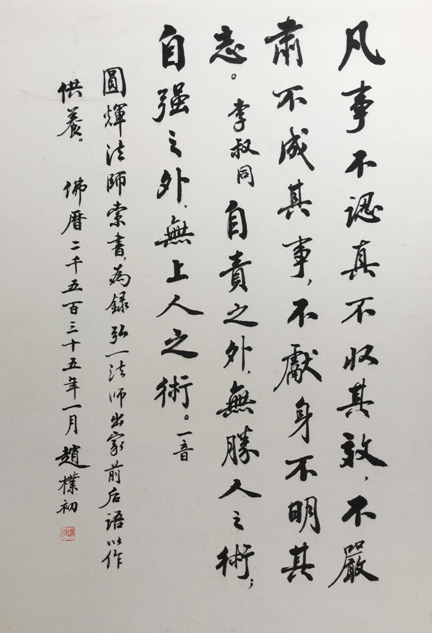 凡事不認真不收其效，不嚴
肅不成其事，不獻身不明其
志。李叔同 自責之外，無勝人之術；
自强之外，無上人之術。一音
圓輝法師索書，為録弘一法師出家前后語以作
供養。 佛曆二千五百三十五年一月 趙樸初